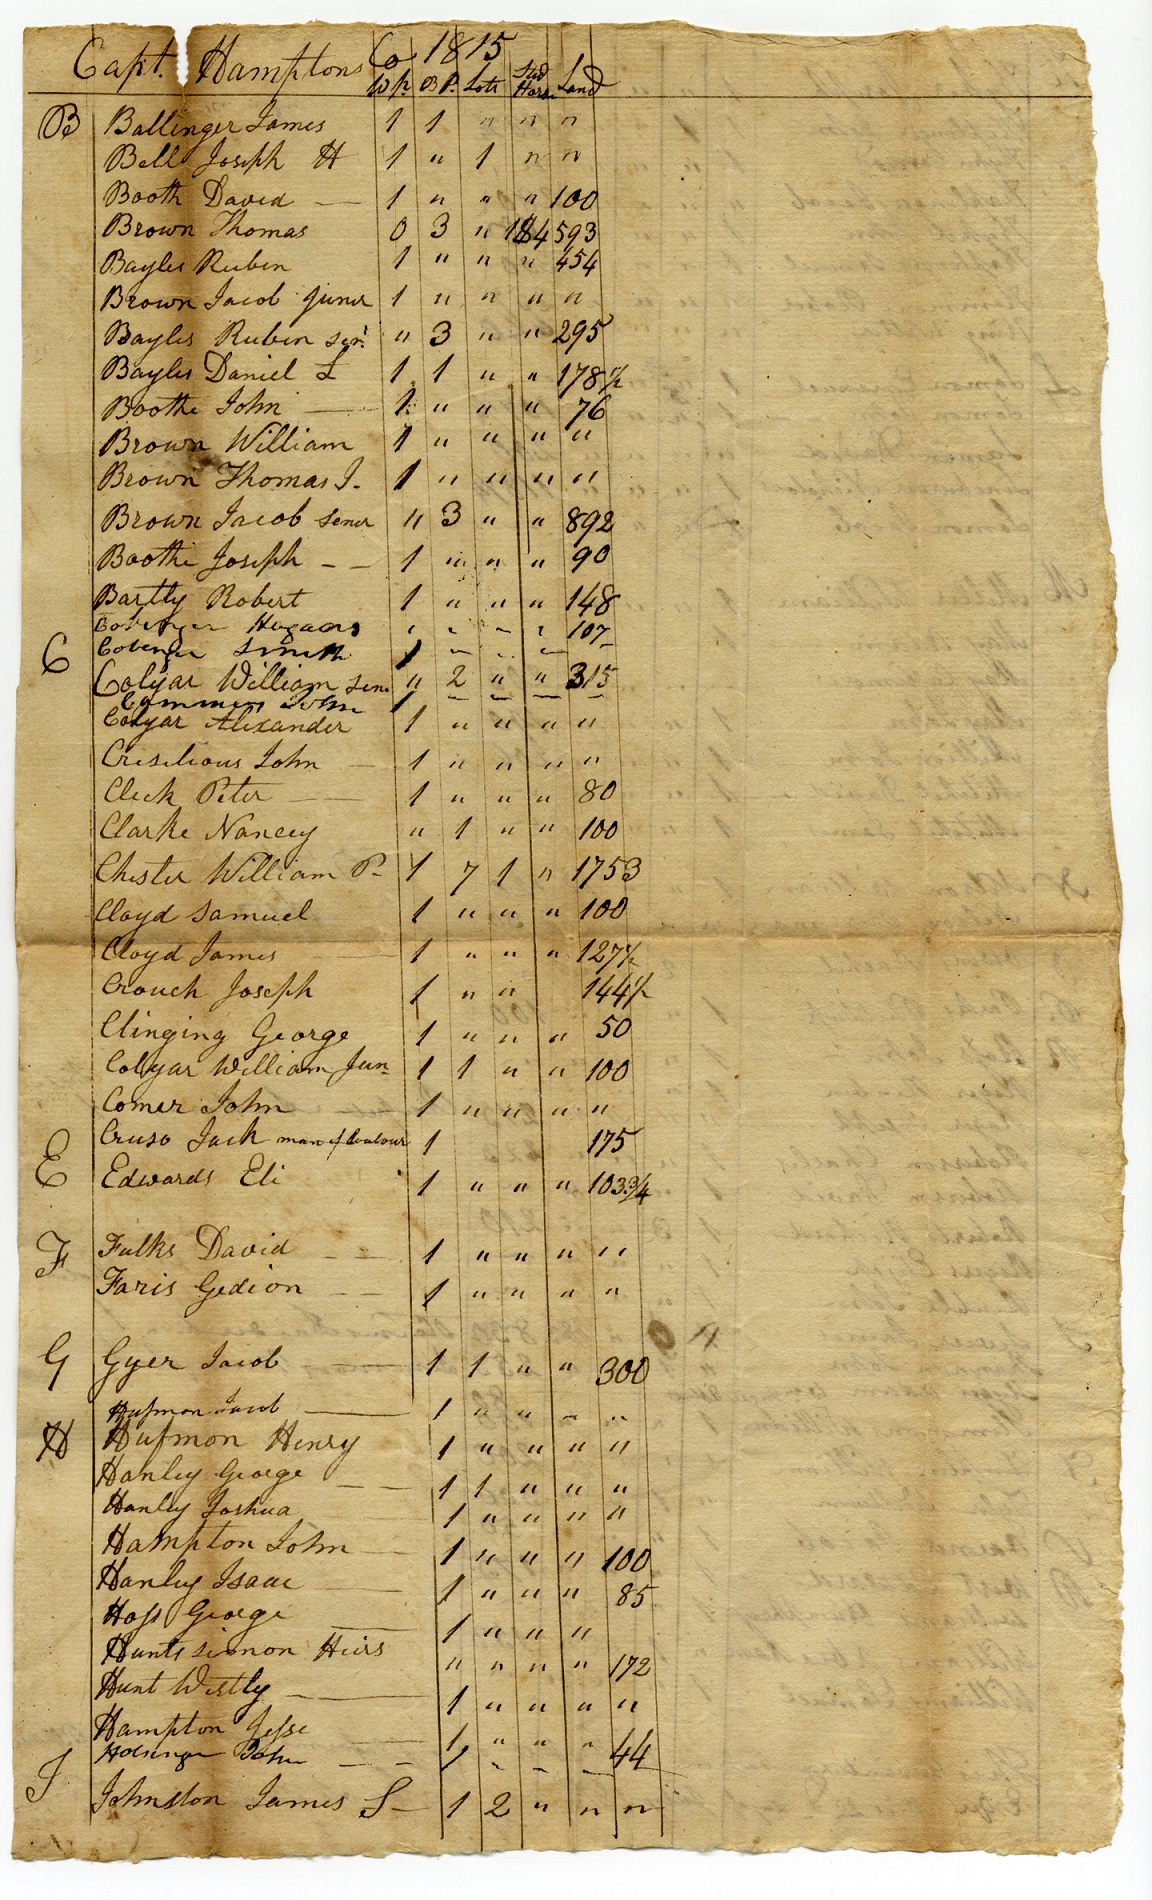 Capt. Hamptons Co 1815
Wp. BP. Lots Stud Horse Land
B Ballinger James 1 1 " " "
Bell Joseph H 1 " 1 " "
Booth David — 1 " " " 100
Brown Thomas 0 3 " 593
Bayles Rubin 1 " " " 454
Brown Jacob Juner 1 " " " "
Bayles Rubin Senr. " 3 " " 295
Bayles Daniel L 1 1 " " 178 1/2
Boothe John — 1 " " " 76
Brown William 1 " " " "
Brown Thomas J. 1 " " " "
Brown Jacob Sener " 3 " " 892
Boothe Joseph – – 1 " " " 90
Bartly Robert 1 " " " 148
107
C Smith 1 – – –
Colyar William Sen. " 2 " " 315
John 1 – – – –
Colyar Alexander 1 " " " "
Criselious John — 1 " " " "
Cleck Peter — 1 " " " 80
Clarke Nancy " 1 " " 100
Chester William P– 1 7 1 " 1753
Cloyd Samuel 1 " " " 100
Cloyd James — 1 " " " 127 1/2
Crouch Joseph 1 " " 144 1/2
Clinging George 1 " " " 50
Colyar William Jun– 1 1 " " 100
Comer John — 1 " " " "
Cruso Jack man of Coulour 1 175
E Edwards Eli 1 " " " 103 3/4
F Fulks David – – 1 " " " "
Faris Gedion – – 1 " " " "
G Gyer Jacob — 1 1 " " 300
Hufmon Jacob — 1 " " " "
H Hufmon Henry 1 " " " "
Hanley George – – 1 1 " " "
Hanley Joshua 1 " " " "
Hampton John — 1 " " " 100
Hanley Isaac — 1 " " " 85
Hoss George — 1 " " "
Hunts Simon Heirs " " " " 172
Hunt Westly — 1 " " " "
Hampton Jesse — 1 " " "
John – – 1 – – – 44
J Johnston James S– 1 2 " " "